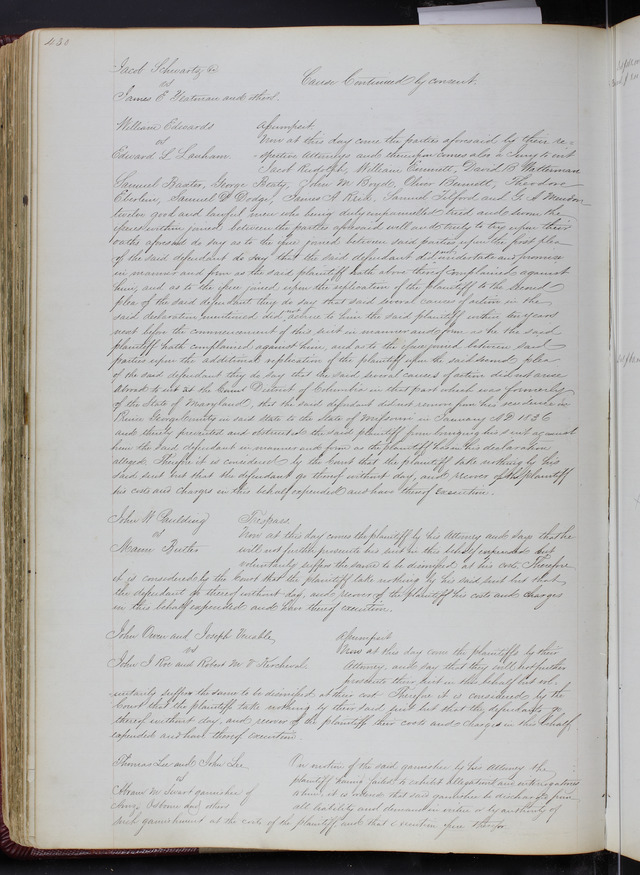 430
Jacob Schwartz &c
vs
James E Yeatman and others
Cause Continued by consent.
William Edwards
vs
Edward L Lanham
Assumpsit
Now at this day come the parties aforesaid by their re-
spective Attorneys and thereupon comes also a Jury to wit
Jacob Rudolph, William Bennett, David B
Samuel Baxter, George Beaty, John M Boyd, Oliver Bennett, Theodore
Samuel D Dodge, James A Samuel Tilford and G
twelve good and lawful men who being duly empannelled tried and sworn the
issues within joined between the parties aforesaid well and truly to try upon their
oaths aforesaid do say as to the issue joined between said parties upon the first plea
of the said defendant do say that the said defendant did undertake and promise
in manner and form as the said plaintiff hath above thereof complained against
him, and as to the issue joined upon the replication of the plaintiff to the second
plea of the said defendant they do say that said several causes of action in the
said declaration mentioned did not accrue to him the said plaintiff within ten years
next before the commencement of this suit in manner and form as he the said
plaintiff hath complained against him, and as to the issue joined between said
parties upon the additional replication of the plaintiff upon the said second plea
of the said defendant they do say that the said several causes of action did not accrue
at the District of Columbia in that part which was formerly
of the State of Maryland, that the said defendant did not remove from his residence in
Prince George County in said State to the State of Missouri in January AD 1836
and thereby prevented and obstructed the said plaintiff from bringing his suit against
him the said defendant in manner and form as the plaintiff has in his declaration
alleged. Therefore it is considered by the Court that the plaintiff take nothing by his
said suit but that the defendant go thereof without day, and recover of the plaintiff
his costs and charges in this behalf expended and have thereof execution.
John W Paulding
vs
Mann Butler
Trespass.
Now at this day comes the plaintiff by his Attorney and says that he
will not further prosecute his suit in this behalf but
voluntarily suffers the same to be dismissed at his costs Therefore
it is considered by the Court that the plaintiff take nothing by his said suit but that
the defendant go thereof without day, and recover of the plaintiff his costs and charges
in this behalf expended and have thereof execution.
John Owen and Joseph Venable
vs
John J Roe and Robert M
Assumpsit
Now at this day come the plaintiffs by their
Attorney and say that they will not further
prosecute their suit in this behalf but vol-
untarily suffer the same to be dismissed at their cost Therefore it is considered by the
Court that the plaintiffs take nothing by their said suit but that the defendants go
thereof without day, and recover of the plaintiffs their costs and charges in this behalf
expended and have thereof execution.
Thomas Lee and John Lee
vs
Hiram M garnishee of
Osborn and others
On motion of the said garnishee by his Attorney the
plaintiff having failed to exhibit allegations and interrogatories
herein, it is ordered that said garnishee be discharged from
all liability and demand in under or by authority of
such garnishment at the costs of the plaintiff and that execution issue therefor